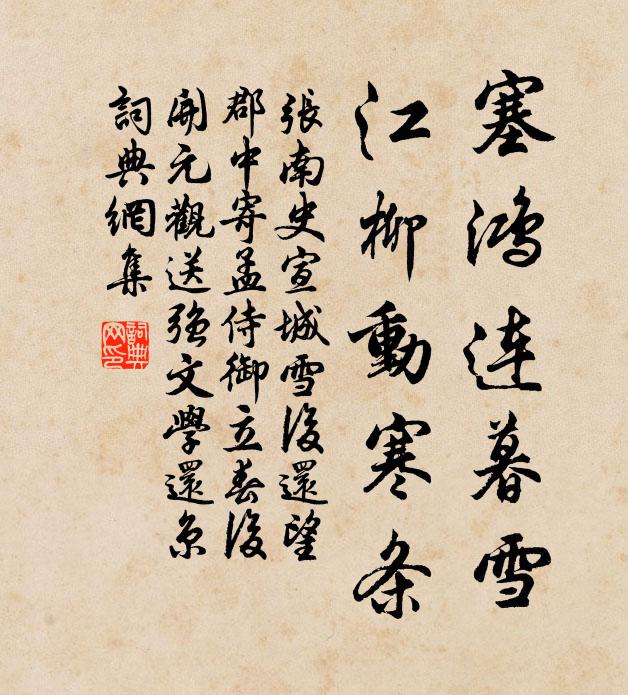 塞鴻連暮雪
江柳動寒条
張南史宣城雪後還望
郡中寄孟侍御立春後
開元觀送強文學還京
詞典網集
詞典
网印